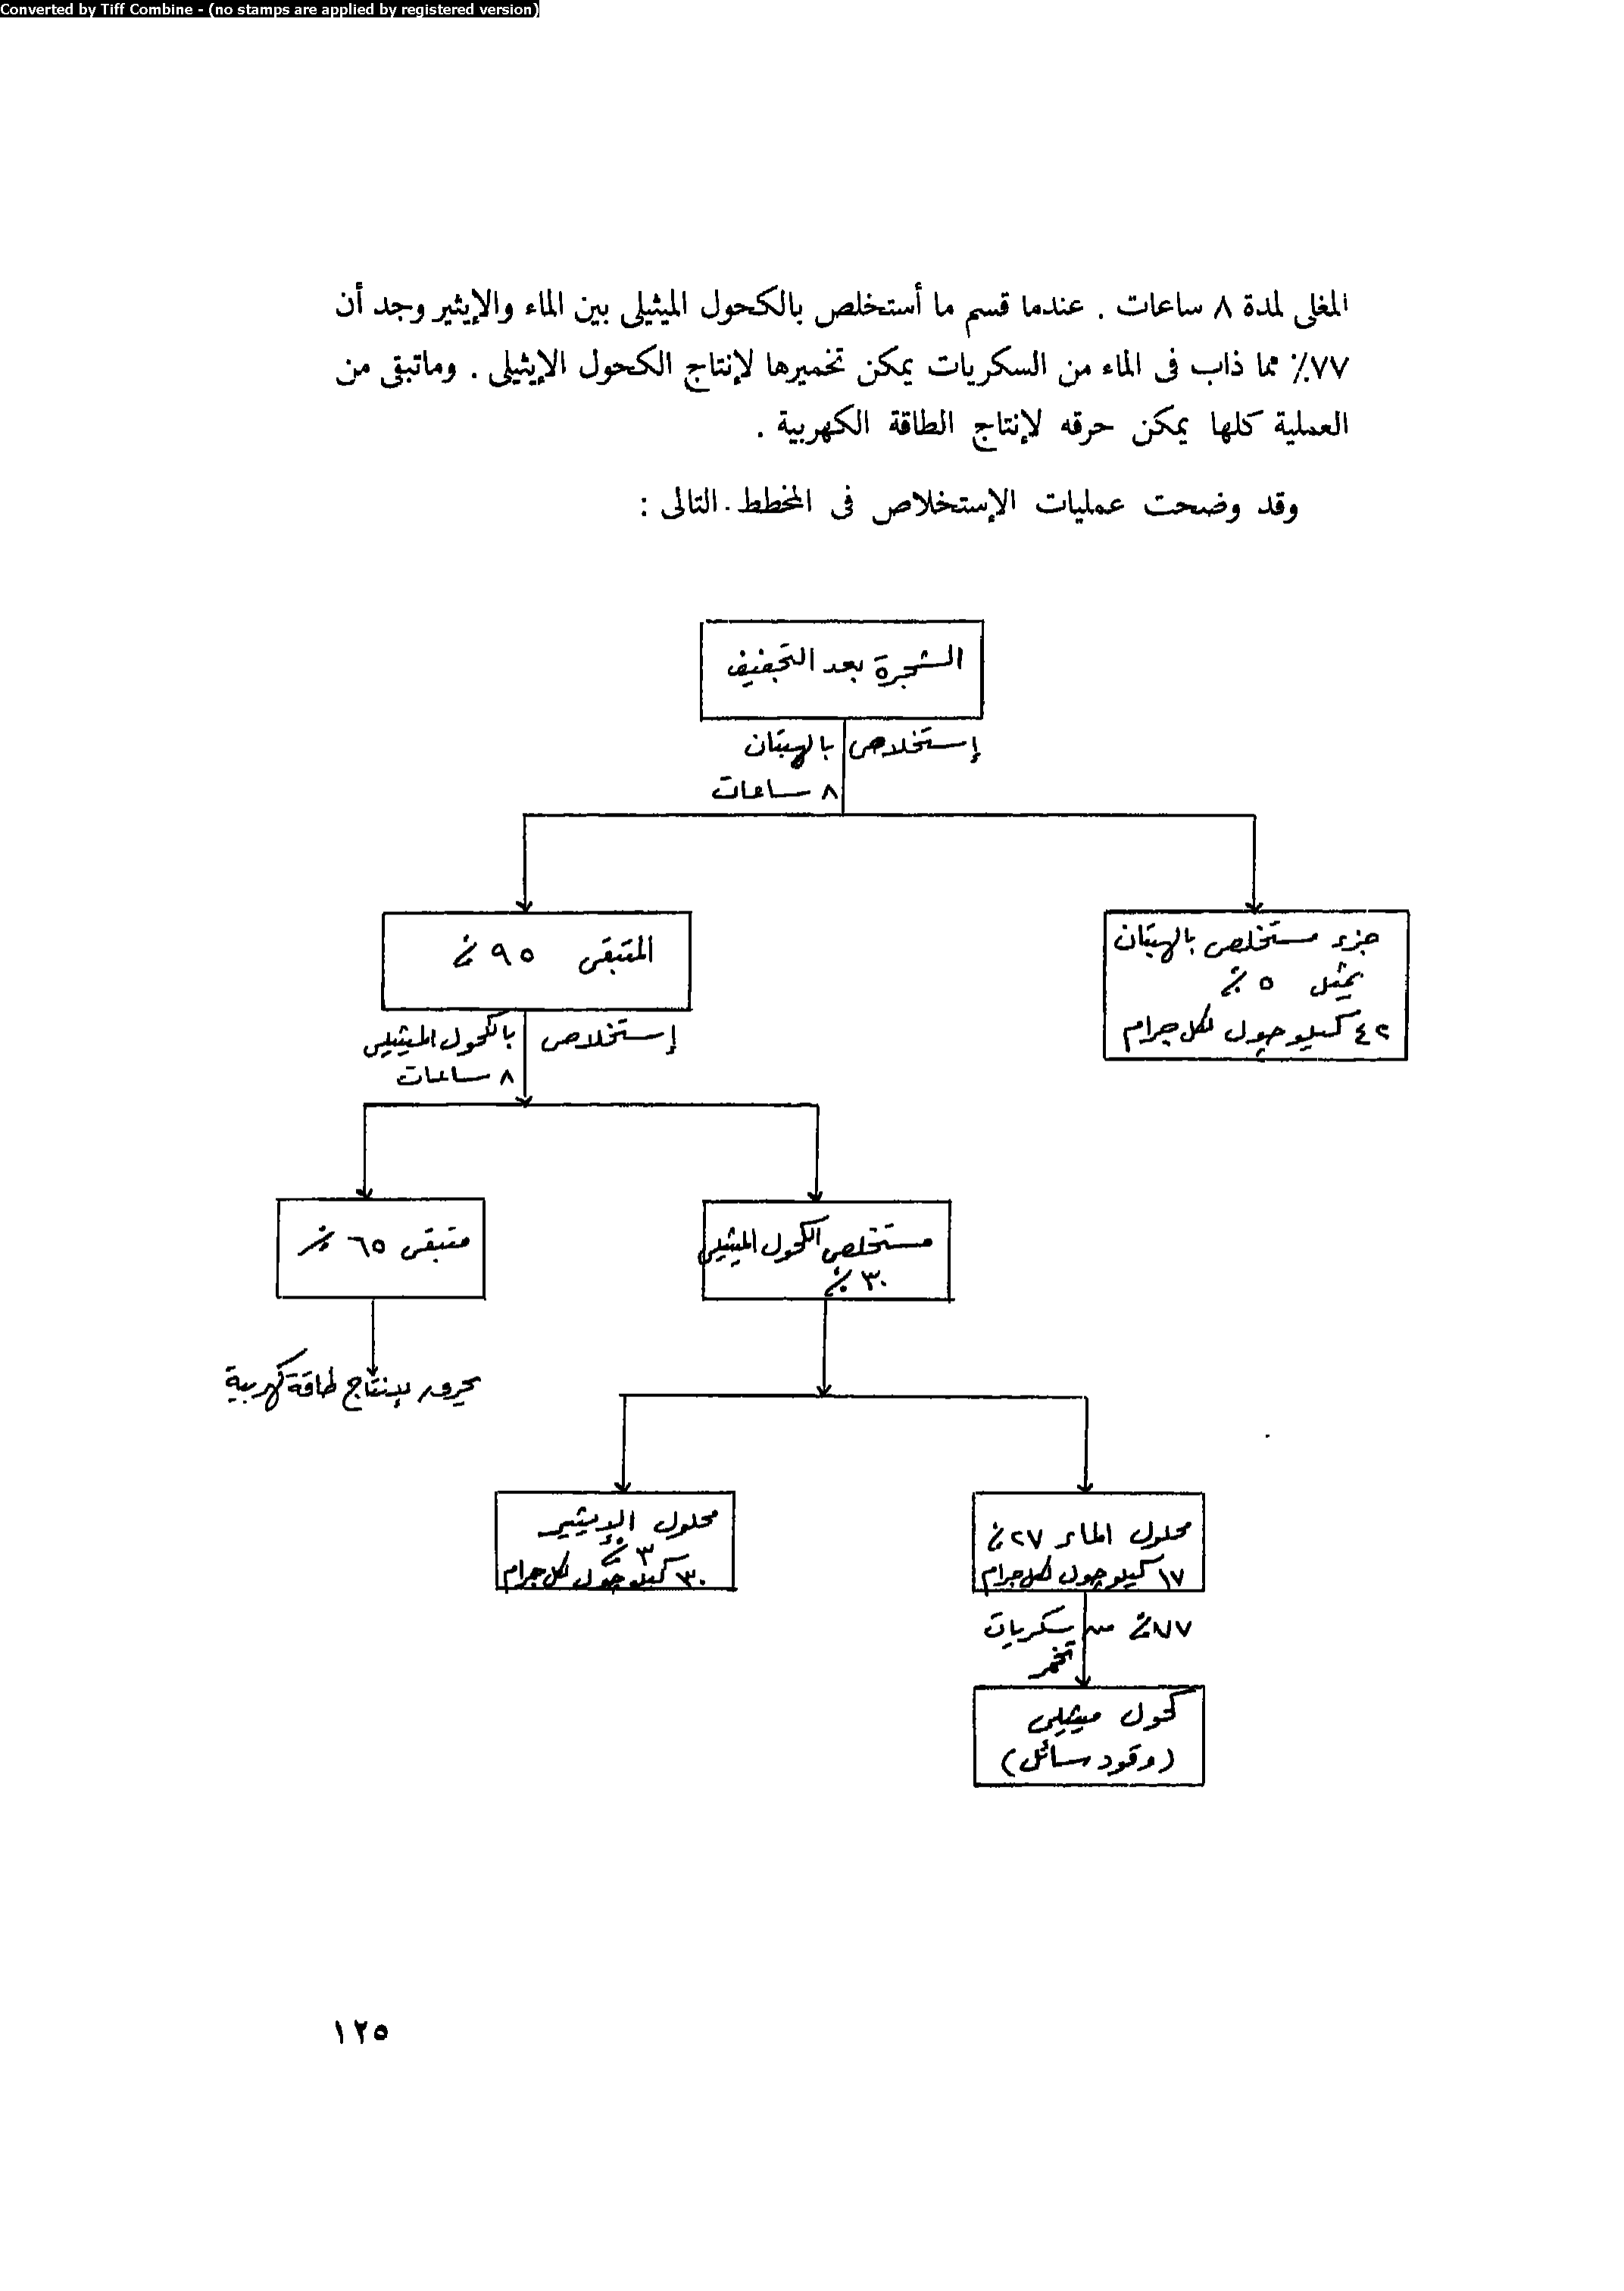 Converted by Tiff Combine - (no stamps are applied by registered version)
المغلى لمدة ٨ ساعات . عندما قسم ما أستخلص بالكحول الميثيلى بين الماء والإيثير وجد أن
٧٧٪ مما ذاب فى الماء من السكريات يمكن تخميرها لإنتاج الكحول الإيثيلى . وماتبقى من
العملية كلها يمكن حرقه لإنتاج الطاقة الكهربية .
وقد وضحت عمليات الإستخلاص فى المخطط . التالى :
الشجرة بعد التجفيف
إستخلاص بالهبتان
٨ ساعات
جزء مستخلص بالهبتان
يمثل ٥ ٪
٤٢ كيلو جول لكل جرام
المتبقى ٩٥ ٪
إستخلاص بالكحول الميثيلى
٨ ساعات
مستخلص الكحول الميثيلى
٣٠ ٪
متبقى ٦٥ ٪
يحرق لإنتاج طاقة كهربية
محلول الماء ٢٧ ٪
١٧ كيلو جول لكل جرام
محلول الإيثير
٣ ٪
٣٠ كيلو جول لكل جرام
٧٧٪ من سكريات
تخمر
كحول ميثيلى
(وقود سائل)
١٢٥